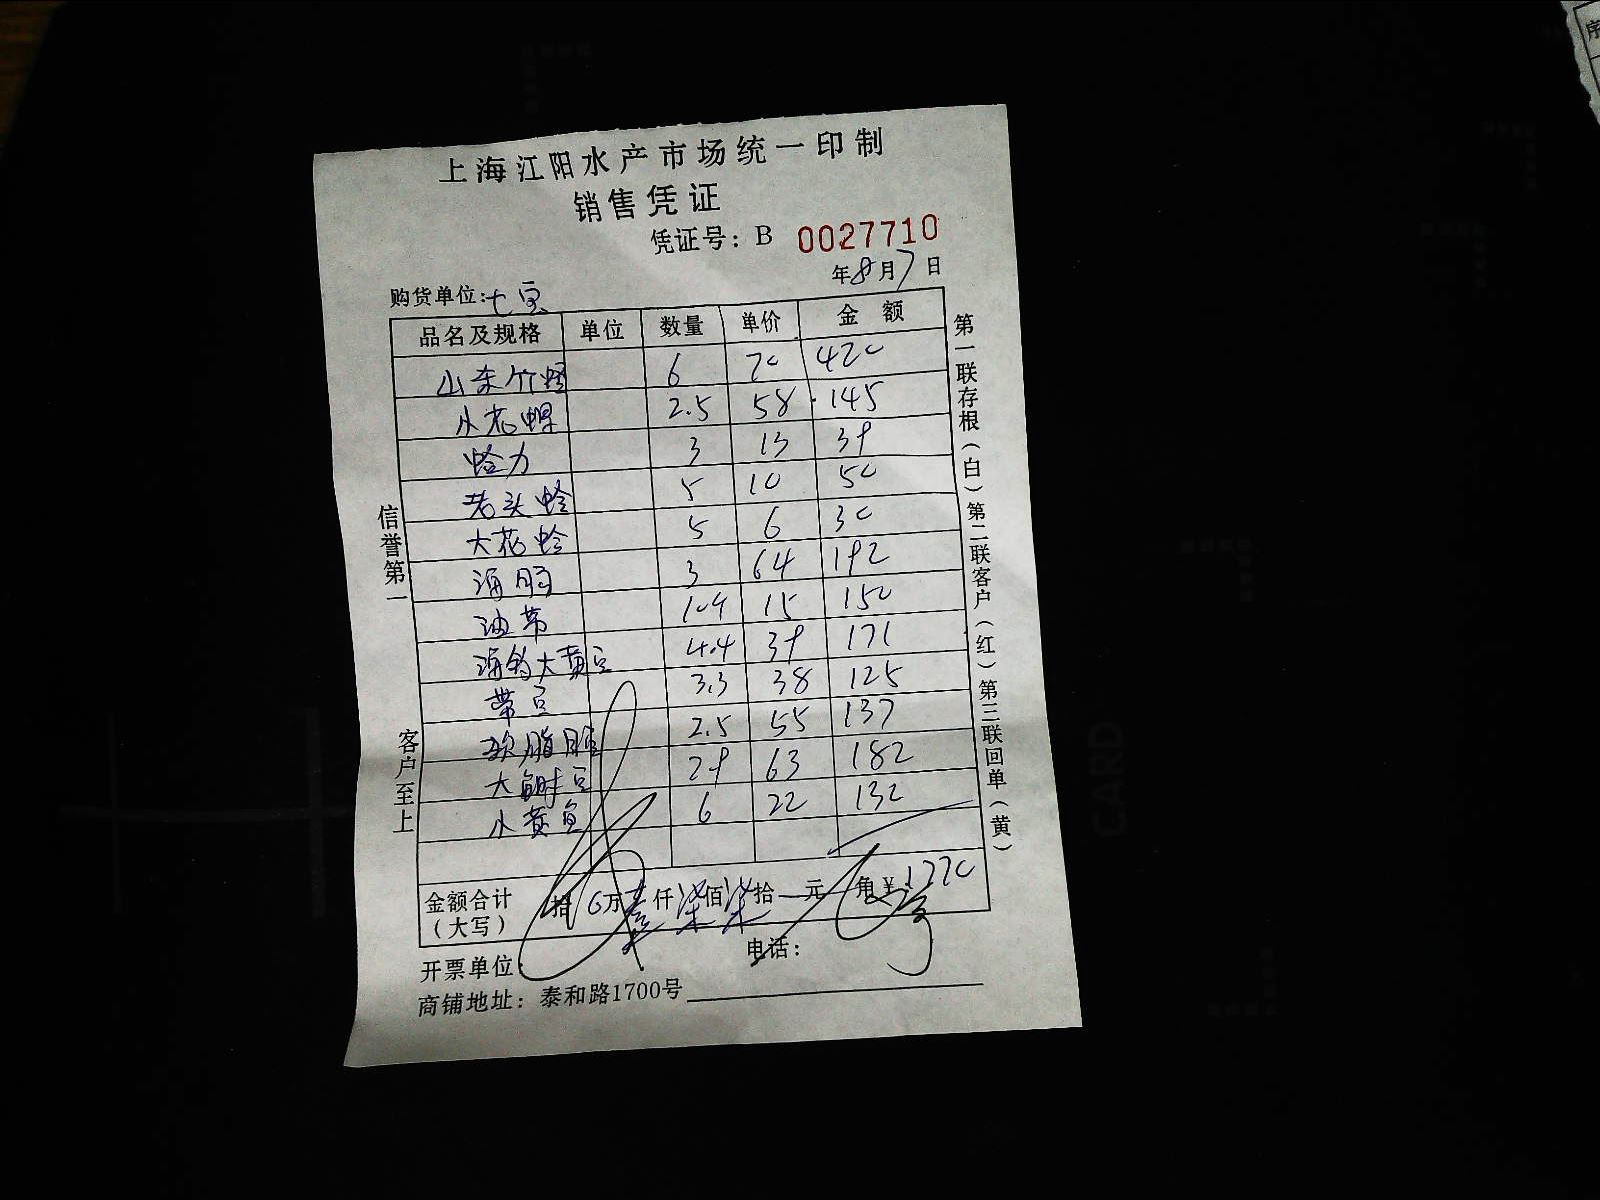 上海江阳水产市场统一印制
销售凭证
凭证号：B 0027710
年8月7日
购货单位：七宝
品名及规格 单位 数量 单价 金额
山东竹蛏 6 70 420
小花螺 2.5 58 145
蛤力 3 13 39
老头蛤 5 10 50
大花蛤 5 6 30
海肠 3 64 192
油带 10.4 15 150
海钓大黄鱼 4.4 39 171
带鱼 3.3 38 125
2.5 55 137
大鲥鱼 2.9 63 182
小黄鱼 6 22 132
金额合计（大写） 拾 万壹仟柒佰柒拾 元 角 ¥:1770
开票单位： 电话：
商铺地址：泰和路1700号
信誉第一
客户至上
第一联存根（白）第二联客户（红）第三联回单（黄）
序